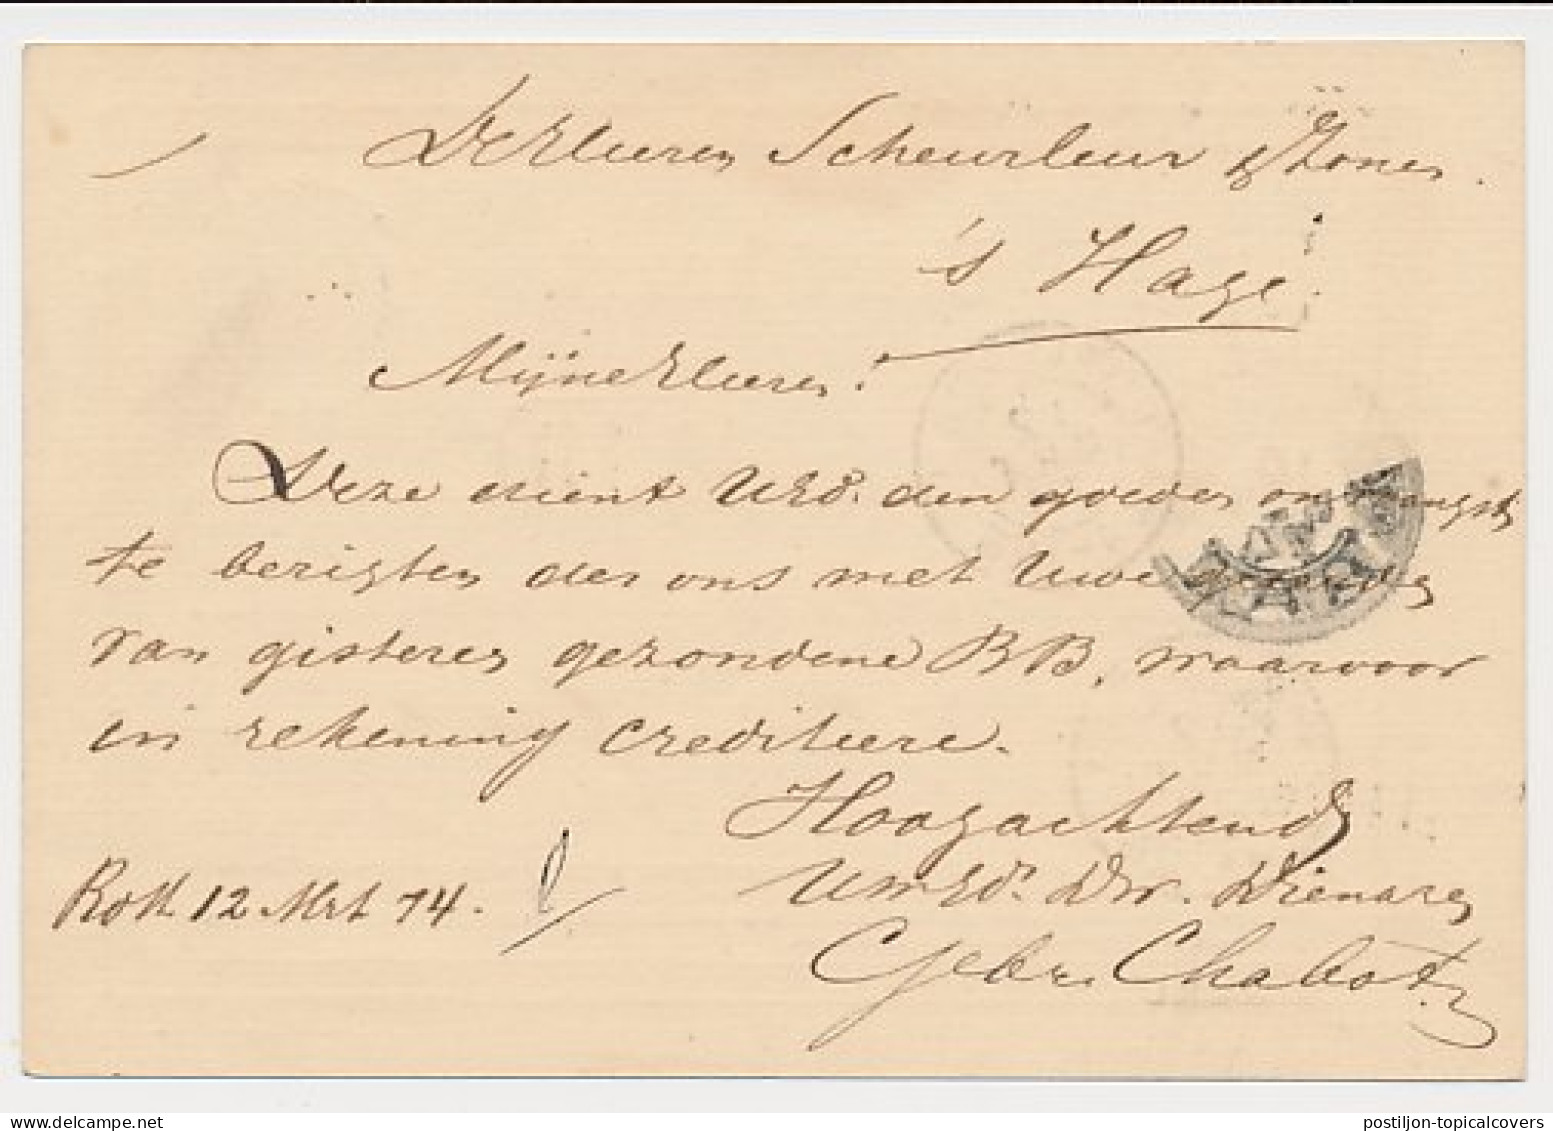 De Heeren Scheurleer & Zonen.
's Hage.
Mijne Heeren!
Deze dient UEd. den goeden ontvangst
te berigten der ons met Uwe geëerde
van gisteren gezondene BB, waarvoor
in rekening crediteere.
Hoogachtend
UwEd. Dw. Dienaren
Rott 12 Mrt 74.
Gebr. Chabot
delcampe.net
postiljon-topicalcovers